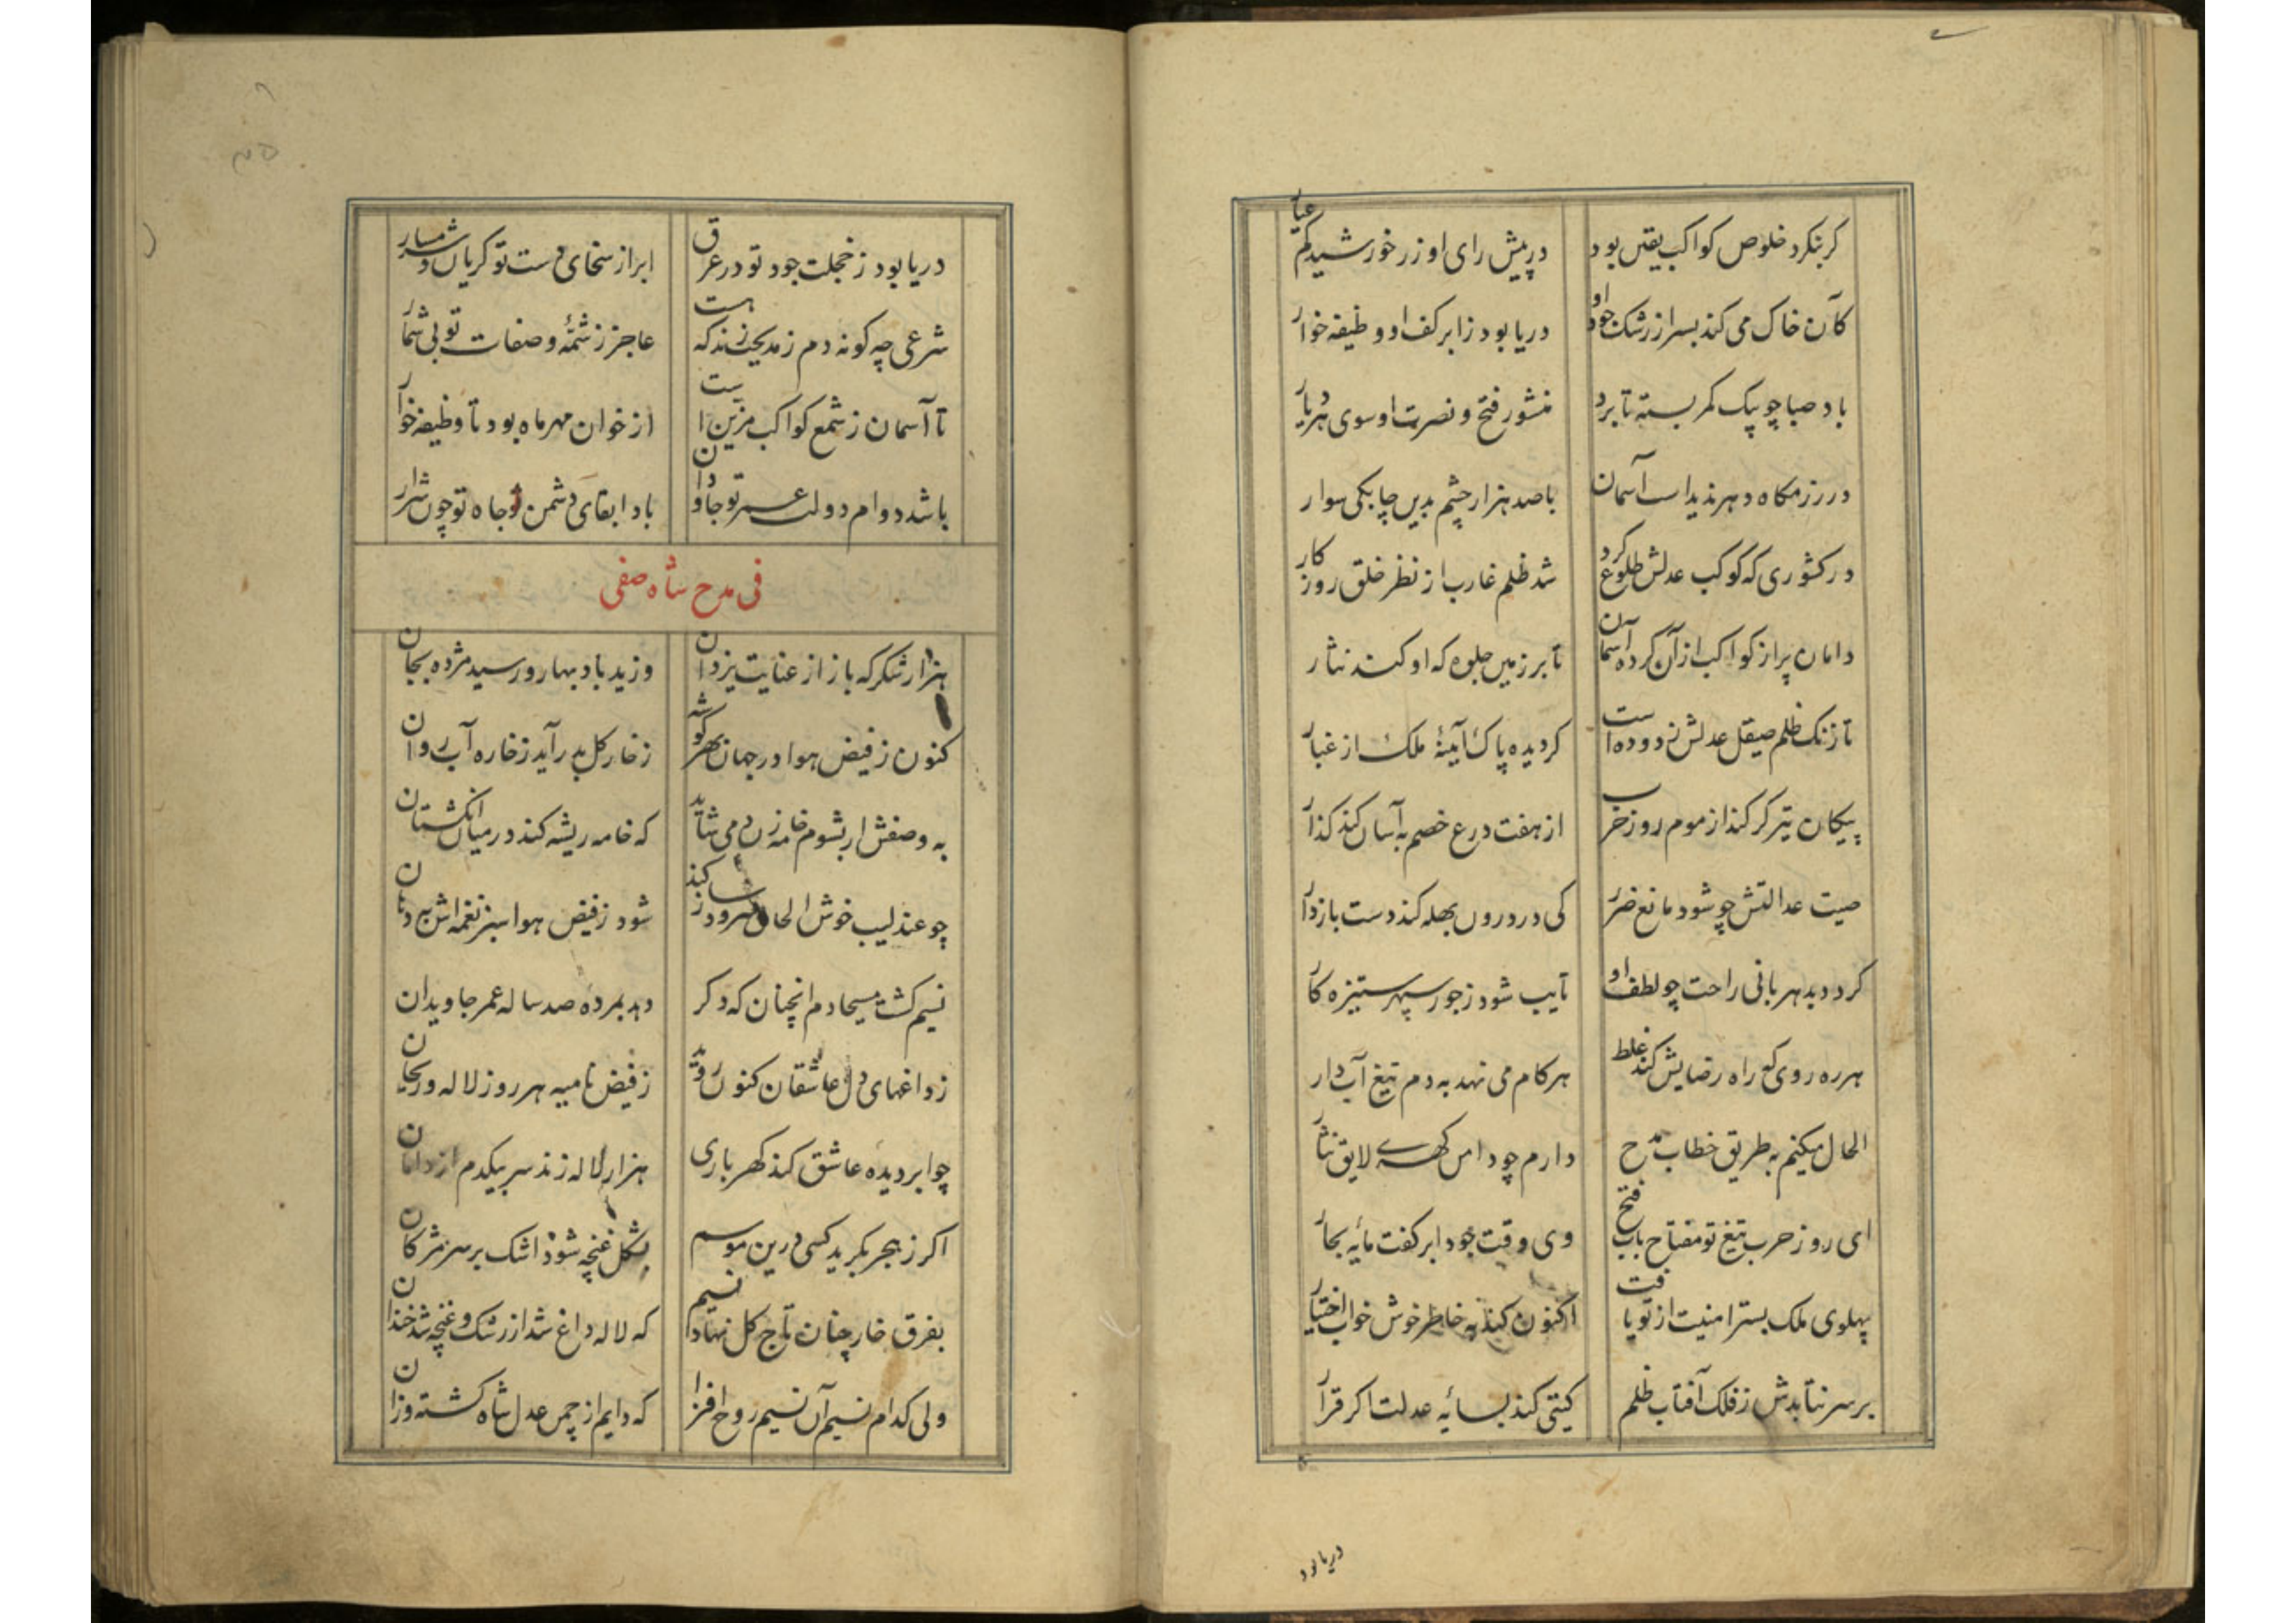 کر بنکرد خلوص کواکب یقین بود در پیش رای او زر خورشید کم عیار
کان خاک می کند بسر از رشک جود او دریا بود ز ابر کف او وظیفه خوار
باد صبا چو پیک کمر بسته تا برد منشور فتح و نصرت او سوی هر دیار
در رزمکاه دهر ندیداست آسمان با صد هزار چشم بدین چابکی سوار
در کشوری که کوکب عدلش طلوع کرد شد ظلم غارب از نظر خلق روزکار
دامان پر از کواکب از آن کرده آسمان تا بر زمین جلوه که او کند نثار
تا زنک ظلم صیقل عدلش زدوده است کردیده پاک آینهٔ ملک از غبار
پیکان تیر کر کند از موم روز حرب از هفت درع خصم به آسان کند کذار
صیت عدالتش چو شود مانع ضرر کی در درون بهله کند دست بازدار
کردد بدهر بانی راحت چو لطف او تایب شود ز جور سپهر ستیزه کار
هر ره روی که راه رضایش کند غلط هر کام می نهد به دم تیغ آب دار
الحال میکنم به طریق خطاب مدح دارم چو دامن کهری لایق نثار
ای روز حرب تیغ تو مفتاح باب فتح وی وقت جود ابر کفت مایه بحار
پهلوی ملک بستر امنیت از تو یافت اکنون کند به خاطر خوش خواب اختیار
بر سر نتابدش ز فلک آفتاب ظلم کیتی کند بسایهٔ عدلت اکر قرار
دریا بود
دریا بود ز خجلت جود تو در عرق ابر از سخای دست تو کریان و شرمسار
شرعی چه کونه دم ز مدیحت زند که هست عاجز ز شمّهٔ وصفات تو بی شمار
تا آسمان ز شمع کواکب مزین است از خوان مهر ماه بود تا وظیفه خوار
باشد دوام دولت عمر تو جاودان باد ابقای دشمن جاه تو چون شرار
فی مدح شاه صفی
هزار شکر که باز از عنایت یزدان وزید باد بهار و رسید مژده بجان
کنون ز فیض هوا در جهان بهر کوشه ز خار کل بدر آید ز خاره آب روان
به وصفش ار بشوم خامه زن می شاید که خامه ریشه کند در میان انکشتان
چو عندلیب خوش الحان سرود ساز کند شود ز فیض هوا سبز نغمه اش به دهان
نسیم کشت مسیحا دم انچنان که دکر دهد بمرده صد ساله عمر جاویدان
ز داغهای دل عاشقان کنون روید ز فیض نامیه هر روز لاله و ریحان
چو ابر دیده عاشق کند کهرباری هزار لاله زند سر بیکدم از دامان
اکر ز هجر بکرید کسی درین موسم بشکل غنچه شود اشک بر سر مژکان
بفرق خار چنان تاج کل نهاد نسیم که لاله داغ شد از رشک و غنچه شد خندان
ولی کدام نسیم آن نسیم روح افزا که دایم از چمن عدل شاه کشته وزان